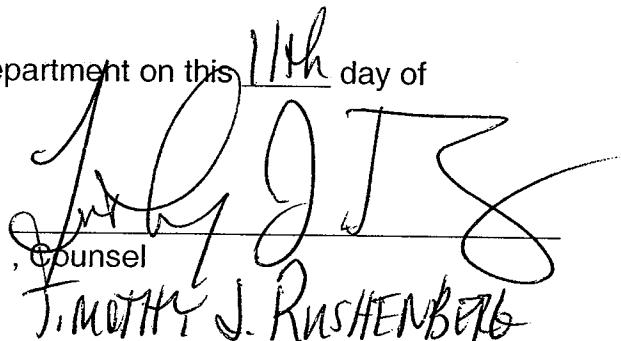 epartment on this 11th day of
, Counsel
TIMOTHY J. RUSHENBERG